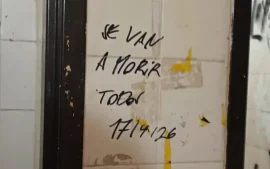 SE VAN
A MORIR
TODOS
17/4/26